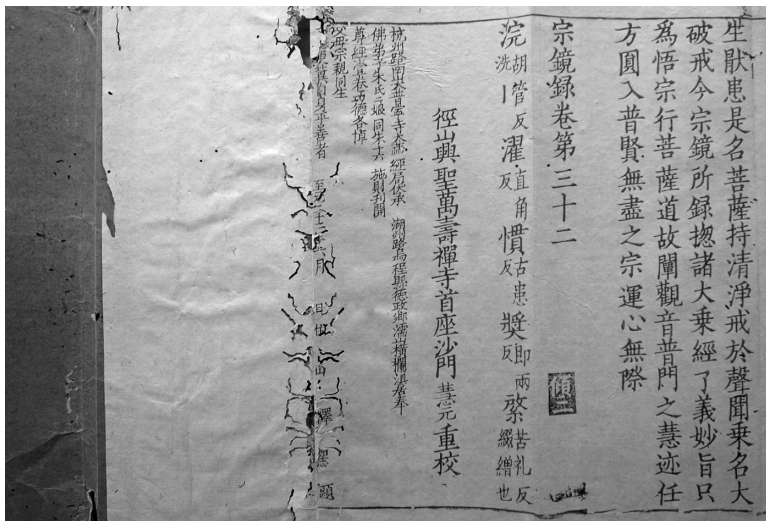 生猒患是名菩薩持清淨戒於聲聞乗名大
破戒今宗鏡所録揔諸大乗經了義妙旨只
爲悟宗行菩薩道故闡觀音普門之慧迹任
方圓入普賢無盡之宗運心無際
宗鏡録卷第三十二
浣胡管反洗丨濯直角反慣古患反奬即兩反綮苦礼反綴繒也
徑山興聖萬壽禪寺首座沙門慧元重校
杭州路南天 寺大藏經局伏承 湖州路烏程縣德政鄉
佛弟子朱氏 娘同 施財刊開
尊經 卷功德各
父母宗親同生